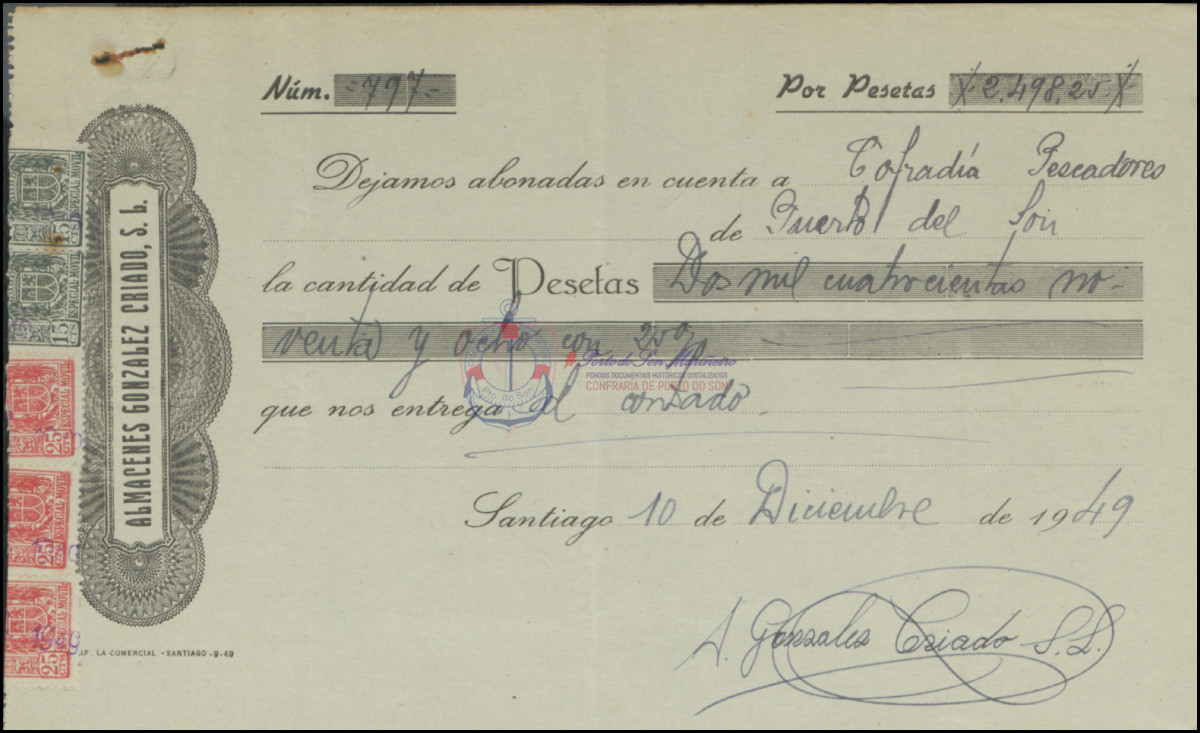 Núm. -797-
Por Pesetas 2.498,25
Dejamos abonadas en cuenta a Cofradía Pescadores
de Puerto del Son
la cantidad de Pesetas Dos mil cuatrocientas no-
venta y ocho con 25%
que nos entrega al contado.
Santiago 10 de Diciembre de 1949
A. Gonzales Criado S.L.
ALMACENES GONZALEZ CRIADO, S. L.
ESPECIAL MOVIL
15 CTS
ESPECIAL MOVIL
15 CTS
ESPECIAL MOVIL
25 CTS
ESPECIAL MOVIL
25 CTS
ESPECIAL MOVIL
25 CTS
1949
IMP. LA COMERCIAL - SANTIAGO - 9-49
Pto. do Son
Porto do Son Mariñeiro
FONDOS DOCUMENTAIS HISTÓRICOS DIGITALIZADOS
CONFRARIA DE PORTO DO SON